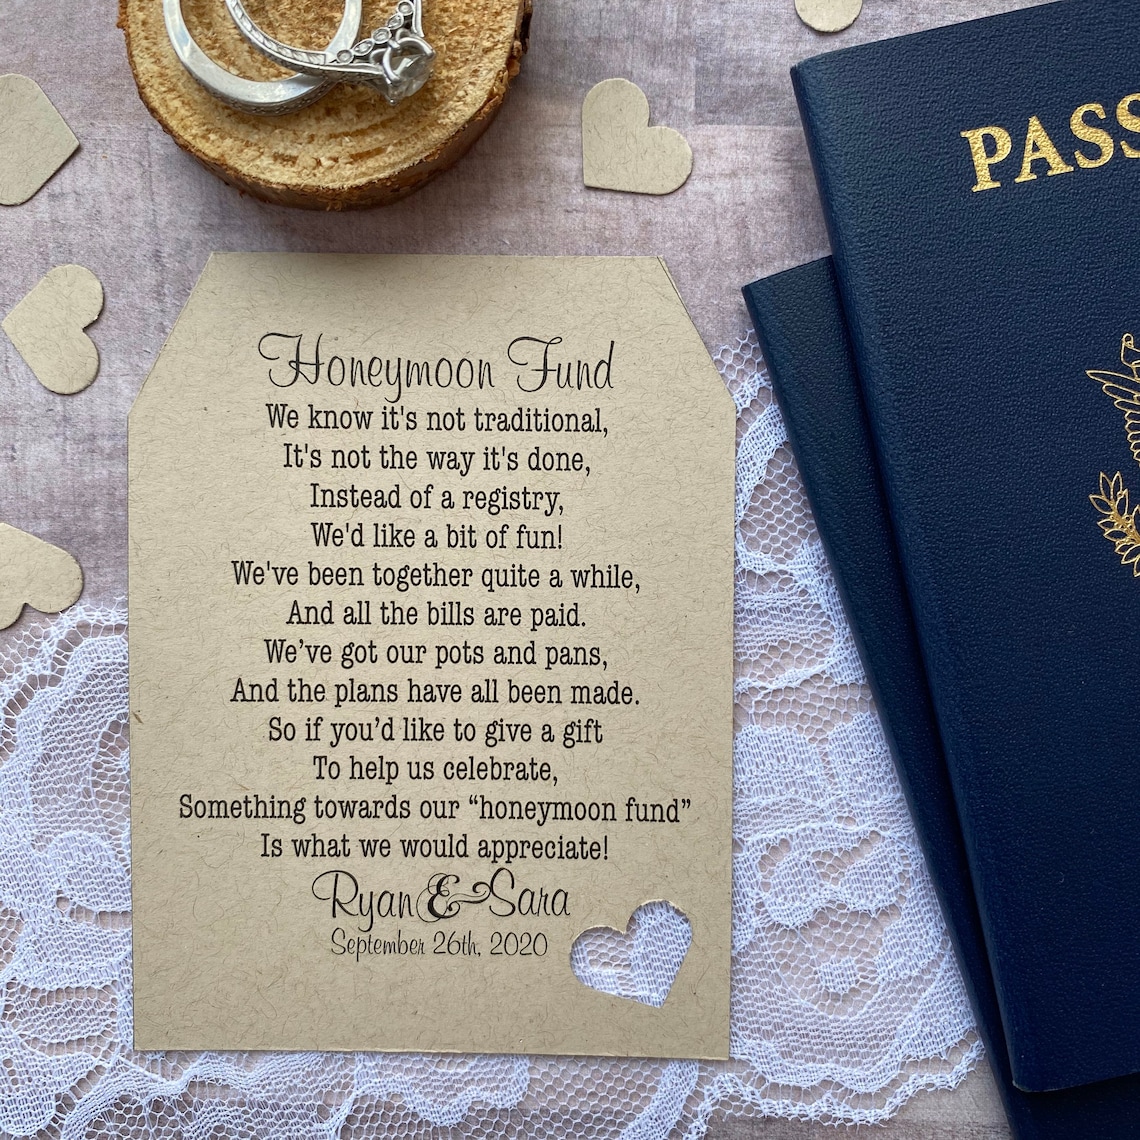 PASS
Honeymoon Fund
We know it's not traditional,
It's not the way it's done,
Instead of a registry,
We'd like a bit of fun!
We've been together quite a while,
And all the bills are paid.
We’ve got our pots and pans,
And the plans have all been made.
So if you’d like to give a gift
To help us celebrate,
Something towards our “honeymoon fund”
Is what we would appreciate!
Ryan & Sara
September 26th, 2020